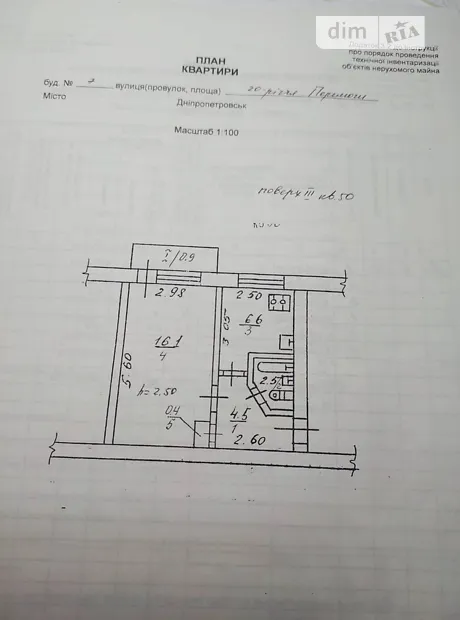 dim RIA
до інструкції
про порядок проведення
технічної інвентаризації
об'єктів нерухомого майна
ПЛАН
КВАРТИРИ
буд. № вулиця(провулок, площа) 20-річчя Перемоги
Місто Дніпропетровськ
Масштаб 1:100
поверх III кв.50
I/0.9
2.98
2.50
3.05
6.6
3
16.1
4
5.60
h=2.50
2.5
0.4
5
4.5
1
2.60